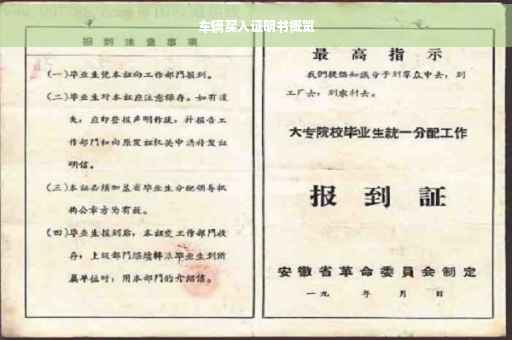 车辆买入证明书概览
报到注意事项
(一)毕业生凭本证向工作部门报到。
(二)毕业生对本证应注意保存。如有遗
失,应即登报声明作废,并报告工
作部门和向原发证机关申请补发证
明信。
(三)本证必须加盖省毕业生分配领导机
构公章方为有效。
(四)毕业生报到后,本证交工作部门收
存;上级部门继续转派毕业生到所
属单位时,用本部门的介绍信。
最高指示
我们提倡知识分子到群众中去,到
工厂去,到农村去。
大专院校毕业生统一分配工作
报到证
安徽省革命委员会制定
一九 年 月 日